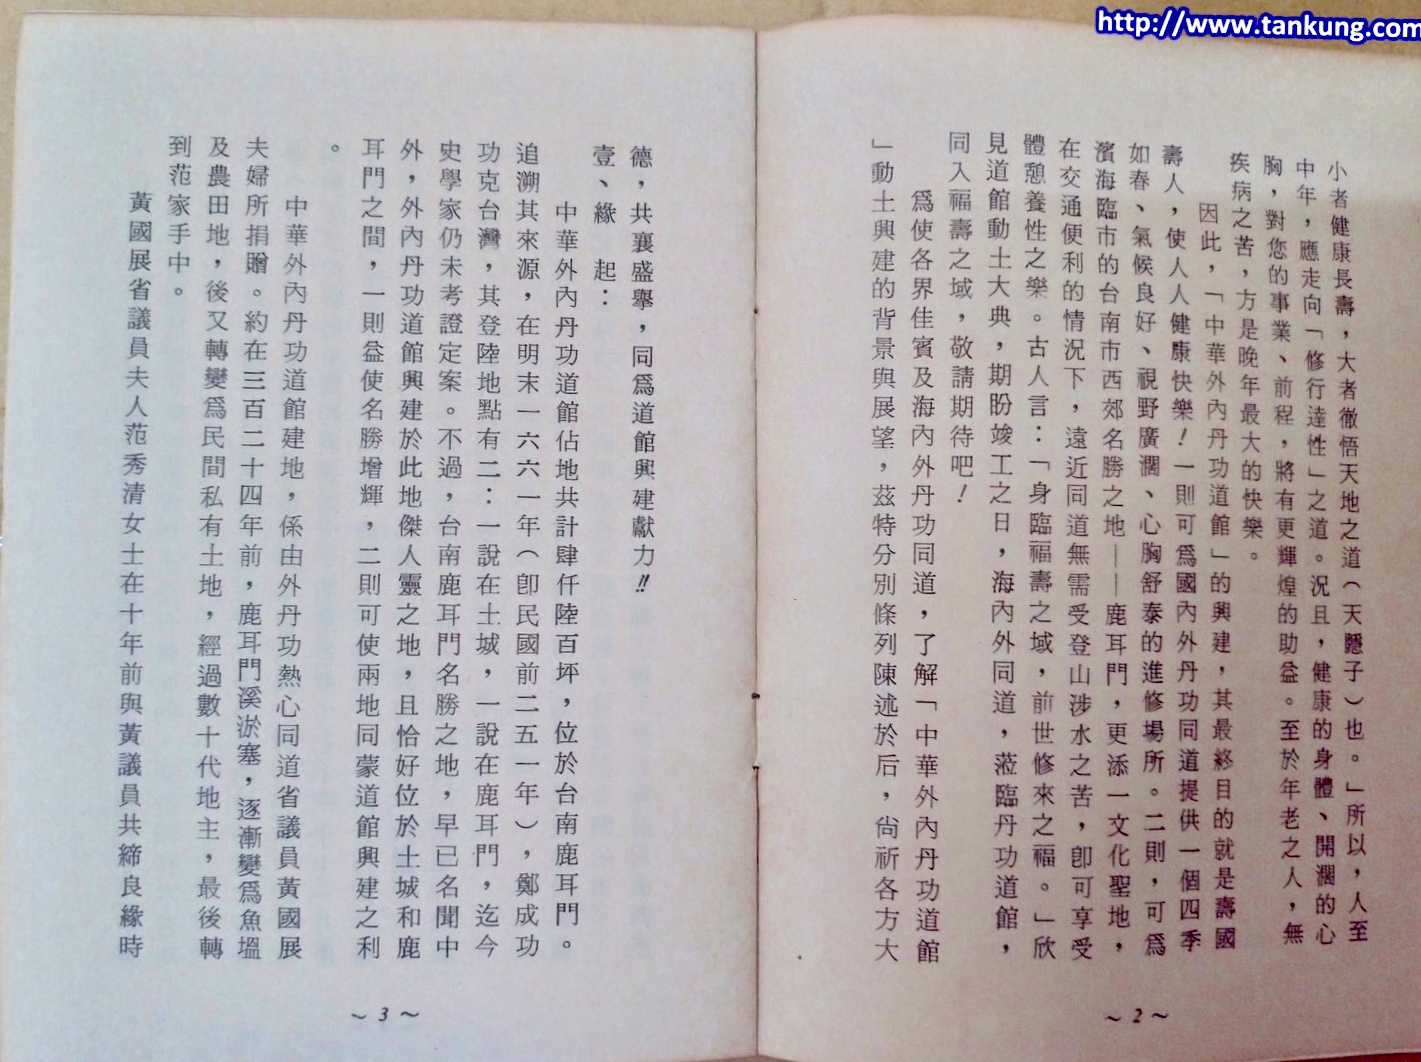 http://www.tankung.com
小者健康長壽，大者徹悟天地之道（天隱子）也。」所以，人至
中年，應走向「修行達性」之道。況且，健康的身體、開濶的心
胸，對您的事業、前程，將有更輝煌的助益。至於年老之人，無
疾病之苦，方是晚年最大的快樂。
因此，「中華外內丹功道館」的興建，其最終目的就是壽國
壽人，使人人健康快樂！一則可為國內外丹功同道提供一個四季
如春、氣候良好、視野廣濶、心胸舒泰的進修場所。二則，可為
濱海臨市的台南市西郊名勝之地——鹿耳門，更添一文化聖地，
在交通便利的情況下，遠近同道無需受登山涉水之苦，卽可享受
體憩養性之樂。古人言：「身臨福壽之域，前世修來之福。」欣
見道館動土大典，期盼竣工之日，海內外同道，蒞臨丹功道館，
同入福壽之域，敬請期待吧！
爲使各界佳賓及海內外丹功同道，了解「中華外內丹功道館
」動土興建的背景與展望，茲特分別條列陳述於后，尙祈各方大
～2～
德，共襄盛舉，同爲道館興建獻力!!
壹、緣　起：
中華外內丹功道館佔地共計肆仟陸百坪，位於台南鹿耳門。
追溯其來源，在明末一六六一年（卽民國前二五一年），鄭成功
功克台灣，其登陸地點有二：一說在土城，一說在鹿耳門，迄今
史學家仍未考證定案。不過，台南鹿耳門名勝之地，早已名聞中
外，外內丹功道館興建於此地傑人靈之地，且恰好位於土城和鹿
耳門之間，一則益使名勝增輝，二則可使兩地同蒙道館興建之利
。
中華外內丹功道館建地，係由外丹功熱心同道省議員黃國展
夫婦所捐贈。約在三百二十四年前，鹿耳門溪淤塞，逐漸變爲魚塭
及農田地，後又轉變爲民間私有土地，經過數十代地主，最後轉
到范家手中。
黃國展省議員夫人范秀清女士在十年前與黃議員共締良緣時
～3～